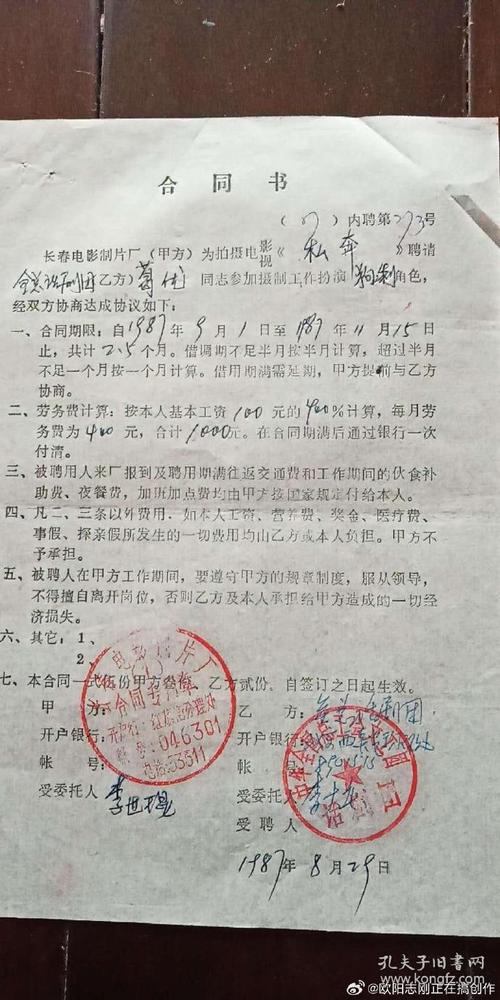 合同书
(87)内聘第273号
长春电影制片厂(甲方)为拍摄电影视《私奔》聘请
全总话剧团(乙方)葛优同志参加摄制工作扮演角色,
经双方协商达成协议如下:
一、合同期限:自1987年9月1日至1987年11月15日
止,共计2.5个月。借调期不足半月按半月计算,超过半月
不足一个月按一个月计算。借用期满需延期,甲方提前与乙方
协商。
二、劳务费计算:按本人基本工资100元的400%计算,每月劳
务费为400元,合计1000元。在合同期满后通过银行一次
付清。
三、被聘用人来厂报到及聘用期满往返交通费和工作期间的伙食补
助费、夜餐费,加班加点费均由甲方按国家规定付给本人。
四、凡二、三条以外费用,如本人工资、营养费、奖金、医疗费、
事假、探亲假所发生的一切费用均由乙方或本人负担。甲方不
予承担。
五、被聘人在甲方工作期间,要遵守甲方的规章制度,服从领导,
不得擅自离开岗位,否则乙方及本人承担给甲方造成的一切经
济损失。
六、其它:1、
2、
七、本合同一式伍份甲方叁份,乙方贰份,自签订之日起生效。
甲方:
开户银行:
帐号:
受委托人
电影制片厂
合同专用章
046301
电话:53511
乙方:全总话剧团
开户银行:
帐号:
受委托人
受聘人
中华全国总工会
话剧团
1987年8月29日
孔夫子旧书网
@欧阳志刚正在搞创作